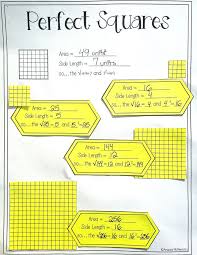 Perfect Squares
Area = 49 units²
Side Length = 7 units
so... the √49 = 7 and 7²=49
Area = 16
Side Length = 4
so... the √16 = 4 and 4²=16
Area = 25
Side Length = 5
so... the √25 = 5 and 5²=25
Area = 144
Side Length = 12
so... the √144 = 12 and 12²=144
Area = 256
Side Length = 16
so... the √256 = 16 and 16²=256